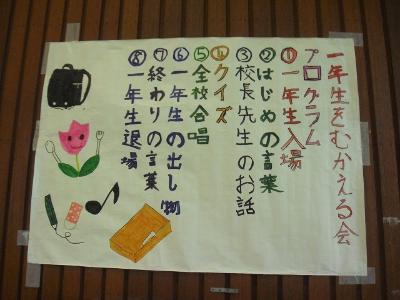 一年生をむかえる会
プログラム
①一年生入場
②はじめの言葉
③校長先生のお話
④クイズ
⑤全校合唱
⑥一年生の出し物
⑦終わりの言葉
⑧一年生退場